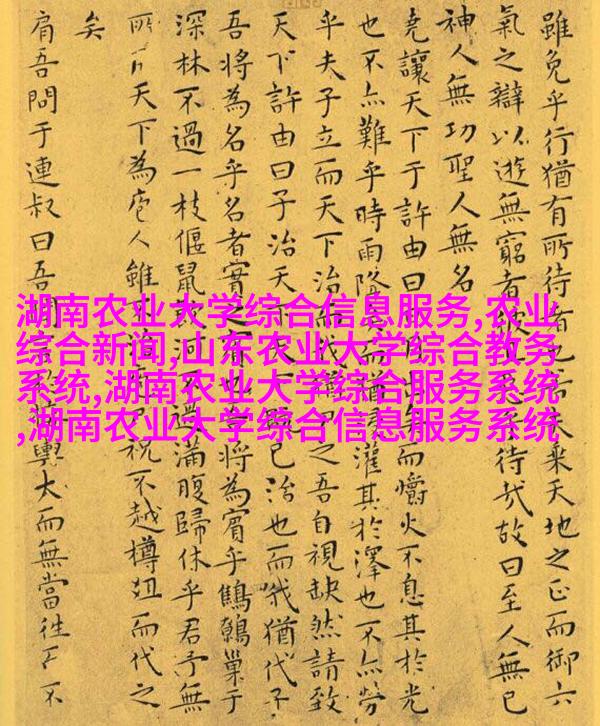 雖免乎行猶有所待者也若夫乘天地之正而御六
氣之辯以遊無窮者彼且惡乎待哉故曰至人無己
神人無功聖人無名
堯讓天下于許由曰月出矣而爝火不息其於光
也不亦難乎時雨降矣而猶灌其於澤也不亦勞
乎夫子立而天下治而我猶之吾自視缺然請致
天下許由曰子治天下既已治也而我猶代子
吾將為名乎名者實之賓也吾將為賓乎鷦鷯巢于
深林不過一枝偃鼠飲河不過滿腹歸休乎君予無
所天下為庖人雖不治祝不越樽俎而代之
矣
肩吾問于連叔曰吾聞言接輿大而無當往不
湖南农业大学综合信息服务,农业
综合新闻,山东农业大学综合教务
系统,湖南农业大学综合服务系统
,湖南农业大学综合信息服务系统